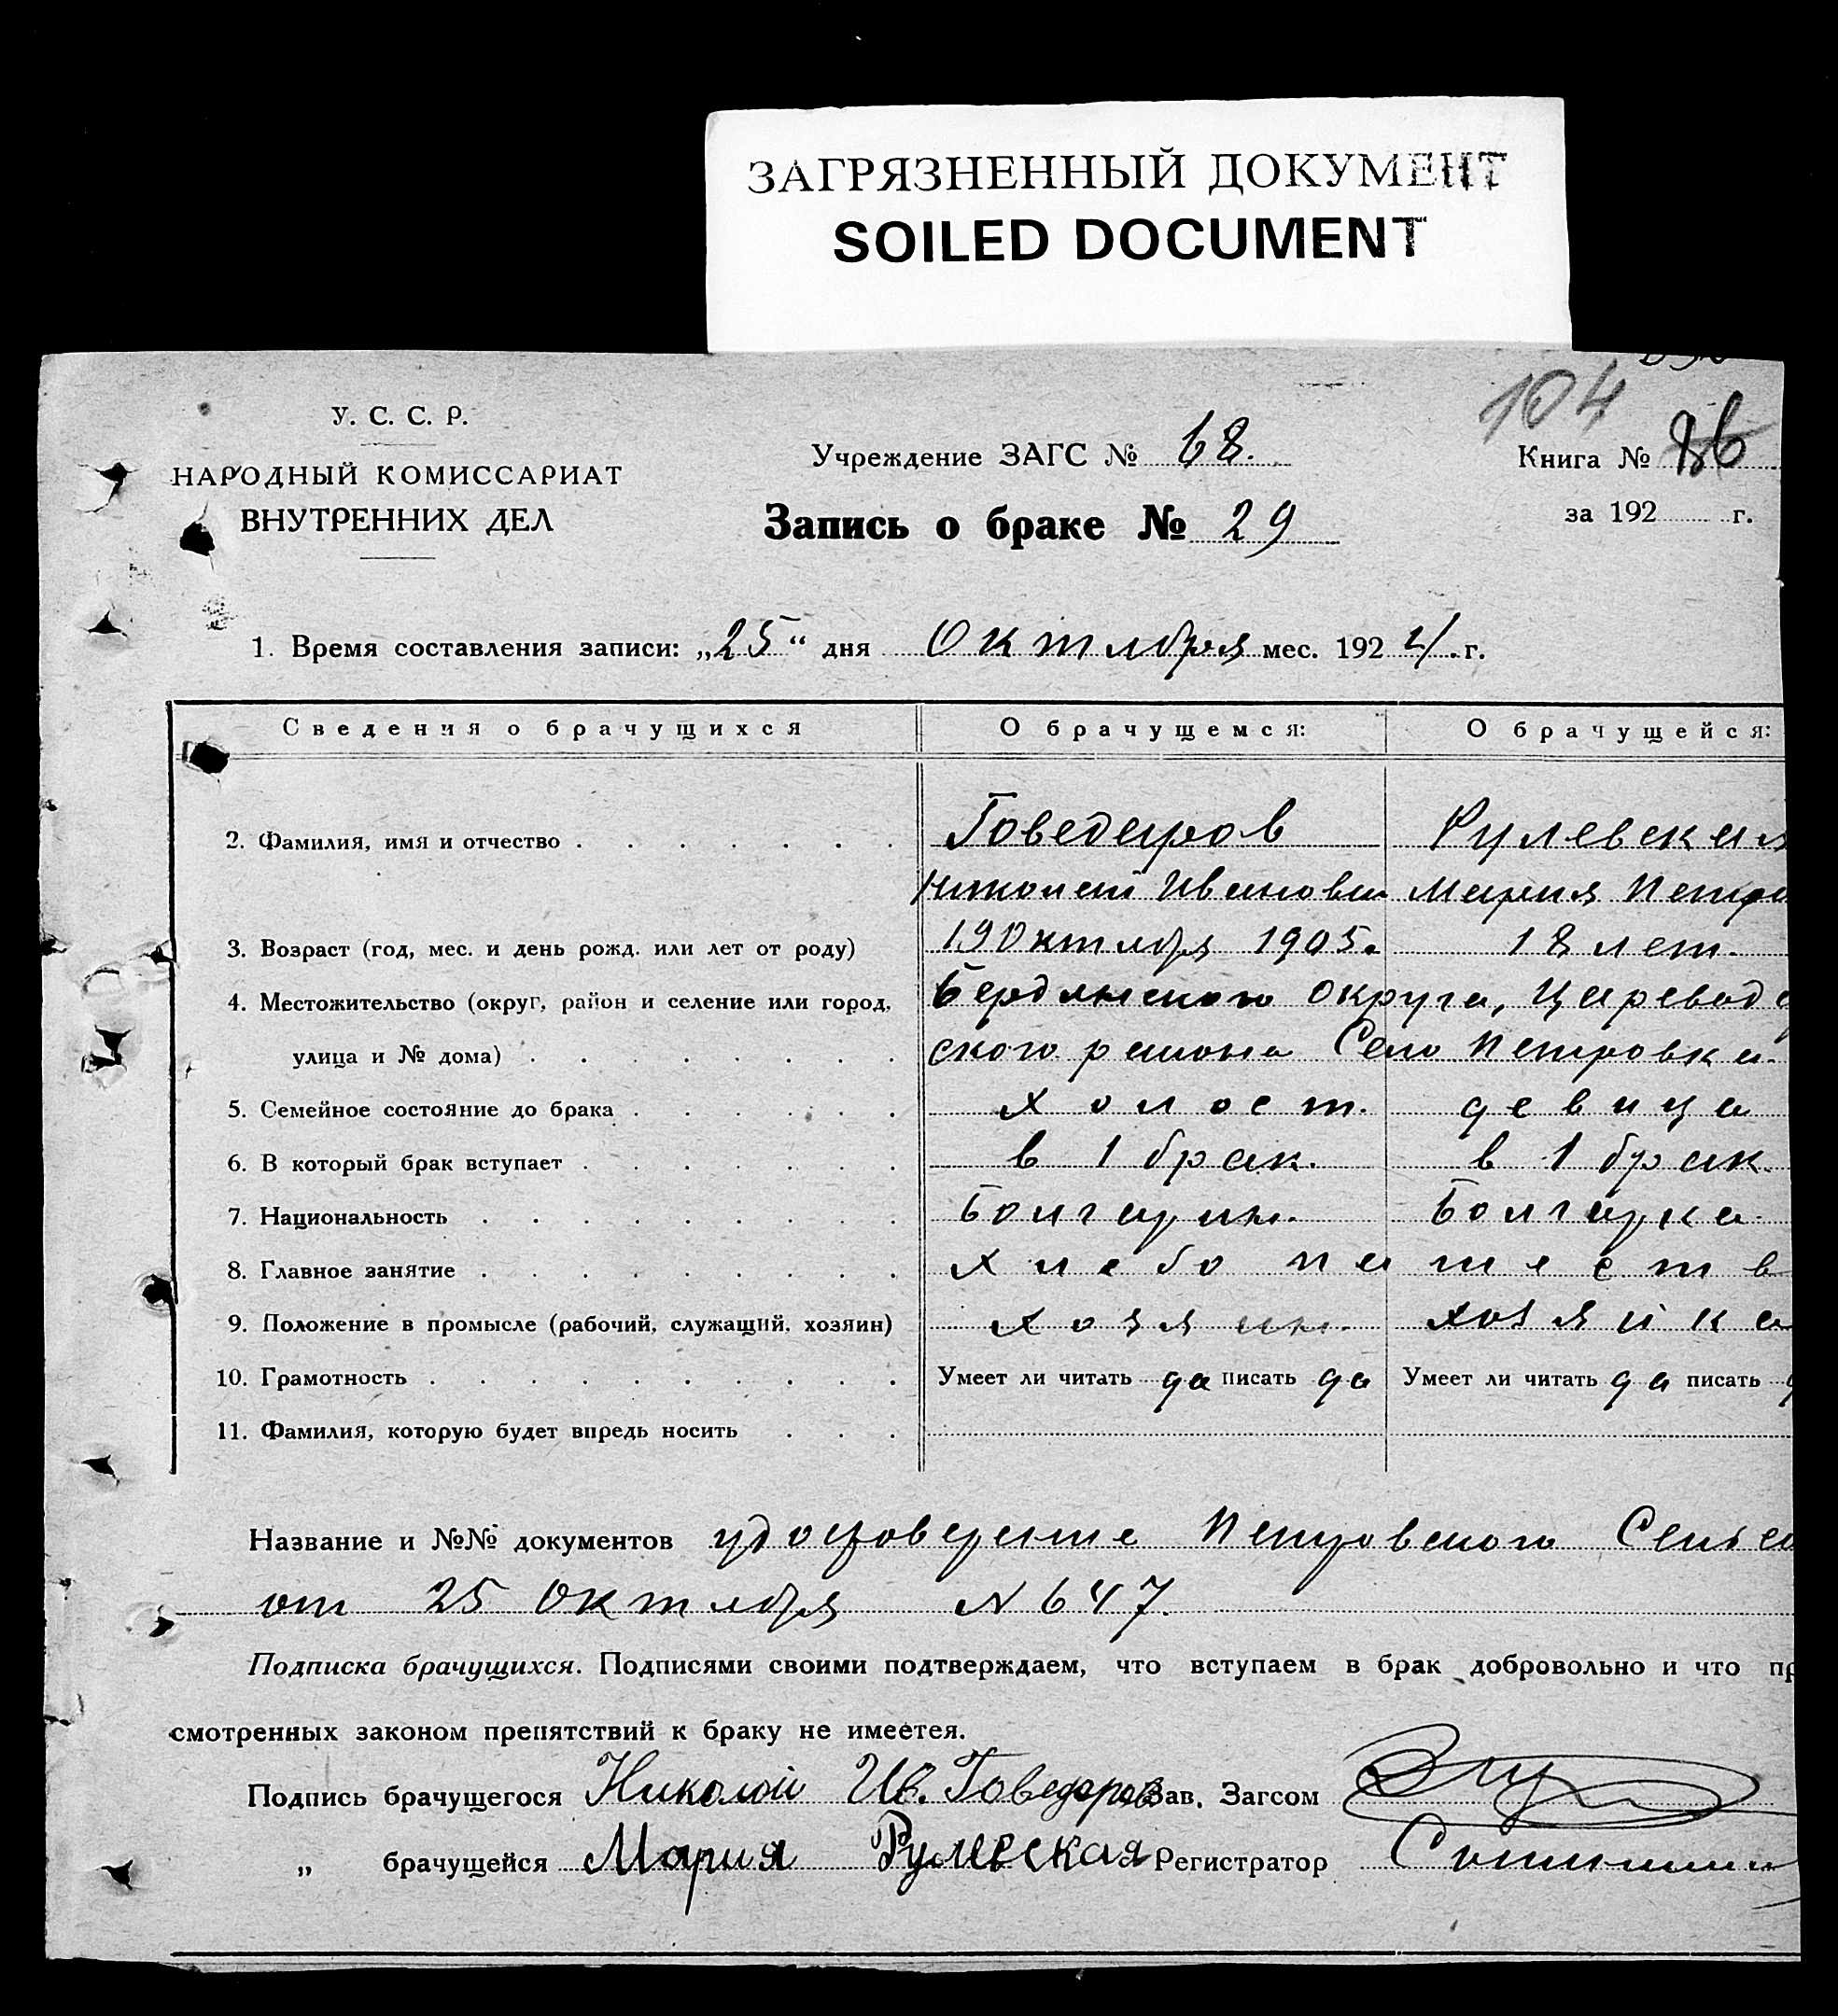 ЗАГРЯЗНЕННЫЙ ДОКУМЕНТ
SOILED DOCUMENT
104
У. С. С. Р.
НАРОДНЫЙ КОМИССАРИАТ
ВНУТРЕННИХ ДЕЛ
Учреждение ЗАГС № 68.
Запись о браке № 29
Книга № 86
за 192 г.
1. Время составления записи: „25“ дня Октября мес. 1924. г.
Сведения о брачущихся О брачущемся: О брачущейся:
2. Фамилия, имя и отчество Говедаров Рулевская
Николай Иванови Мария Петро
3. Возраст (год, мес. и день рожд. или лет от роду) 19 Октября 1905. 18 лет.
4. Местожительство (округ, район и селение или город, Бердянского Округа, Царевод
улица и № дома) ского района Село Петровка.
5. Семейное состояние до брака холост. девица
6. В который брак вступает в 1 брак. в 1 брак.
7. Национальность Болгарин. Болгарка.
8. Главное занятие Хлебопашеств
9. Положение в промысле (рабочий, служащий, хозяин) хозяин. хозяйка
10. Грамотность Умеет ли читать да писать да Умеет ли читать да писать
11. Фамилия, которую будет впредь носить
Название и №№ документов удостоверение Петровского Сельсо
от 25 Октября N 647.
Подписка брачущихся. Подписями своими подтверждаем, что вступаем в брак добровольно и что пр
смотренных законом препятствий к браку не имеется.
Подпись брачущегося Николай Ив. Говедаров Зав. Загсом
„ брачущейся Мария Рулевская Регистратор